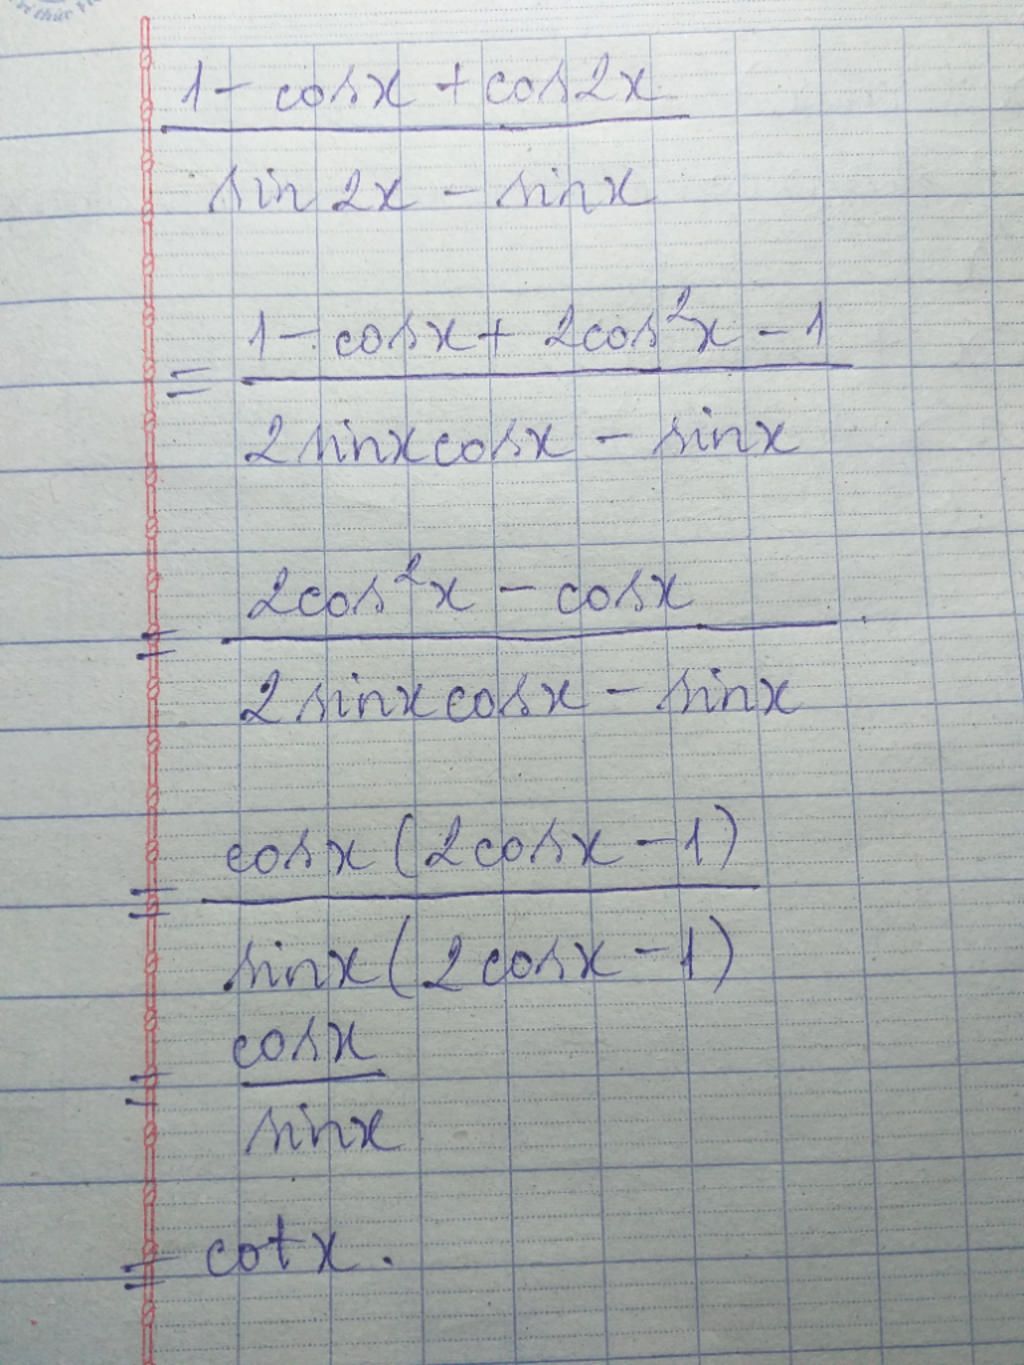 1 - cosx + cos2x
sin 2x - sinx
= 1 - cosx + 2cos²x - 1
2 sinx cosx - sinx
= 2cos²x - cosx
2 sinx cosx - sinx
= cosx (2cosx - 1)
sinx (2cosx - 1)
= cosx
sinx
= cotx.